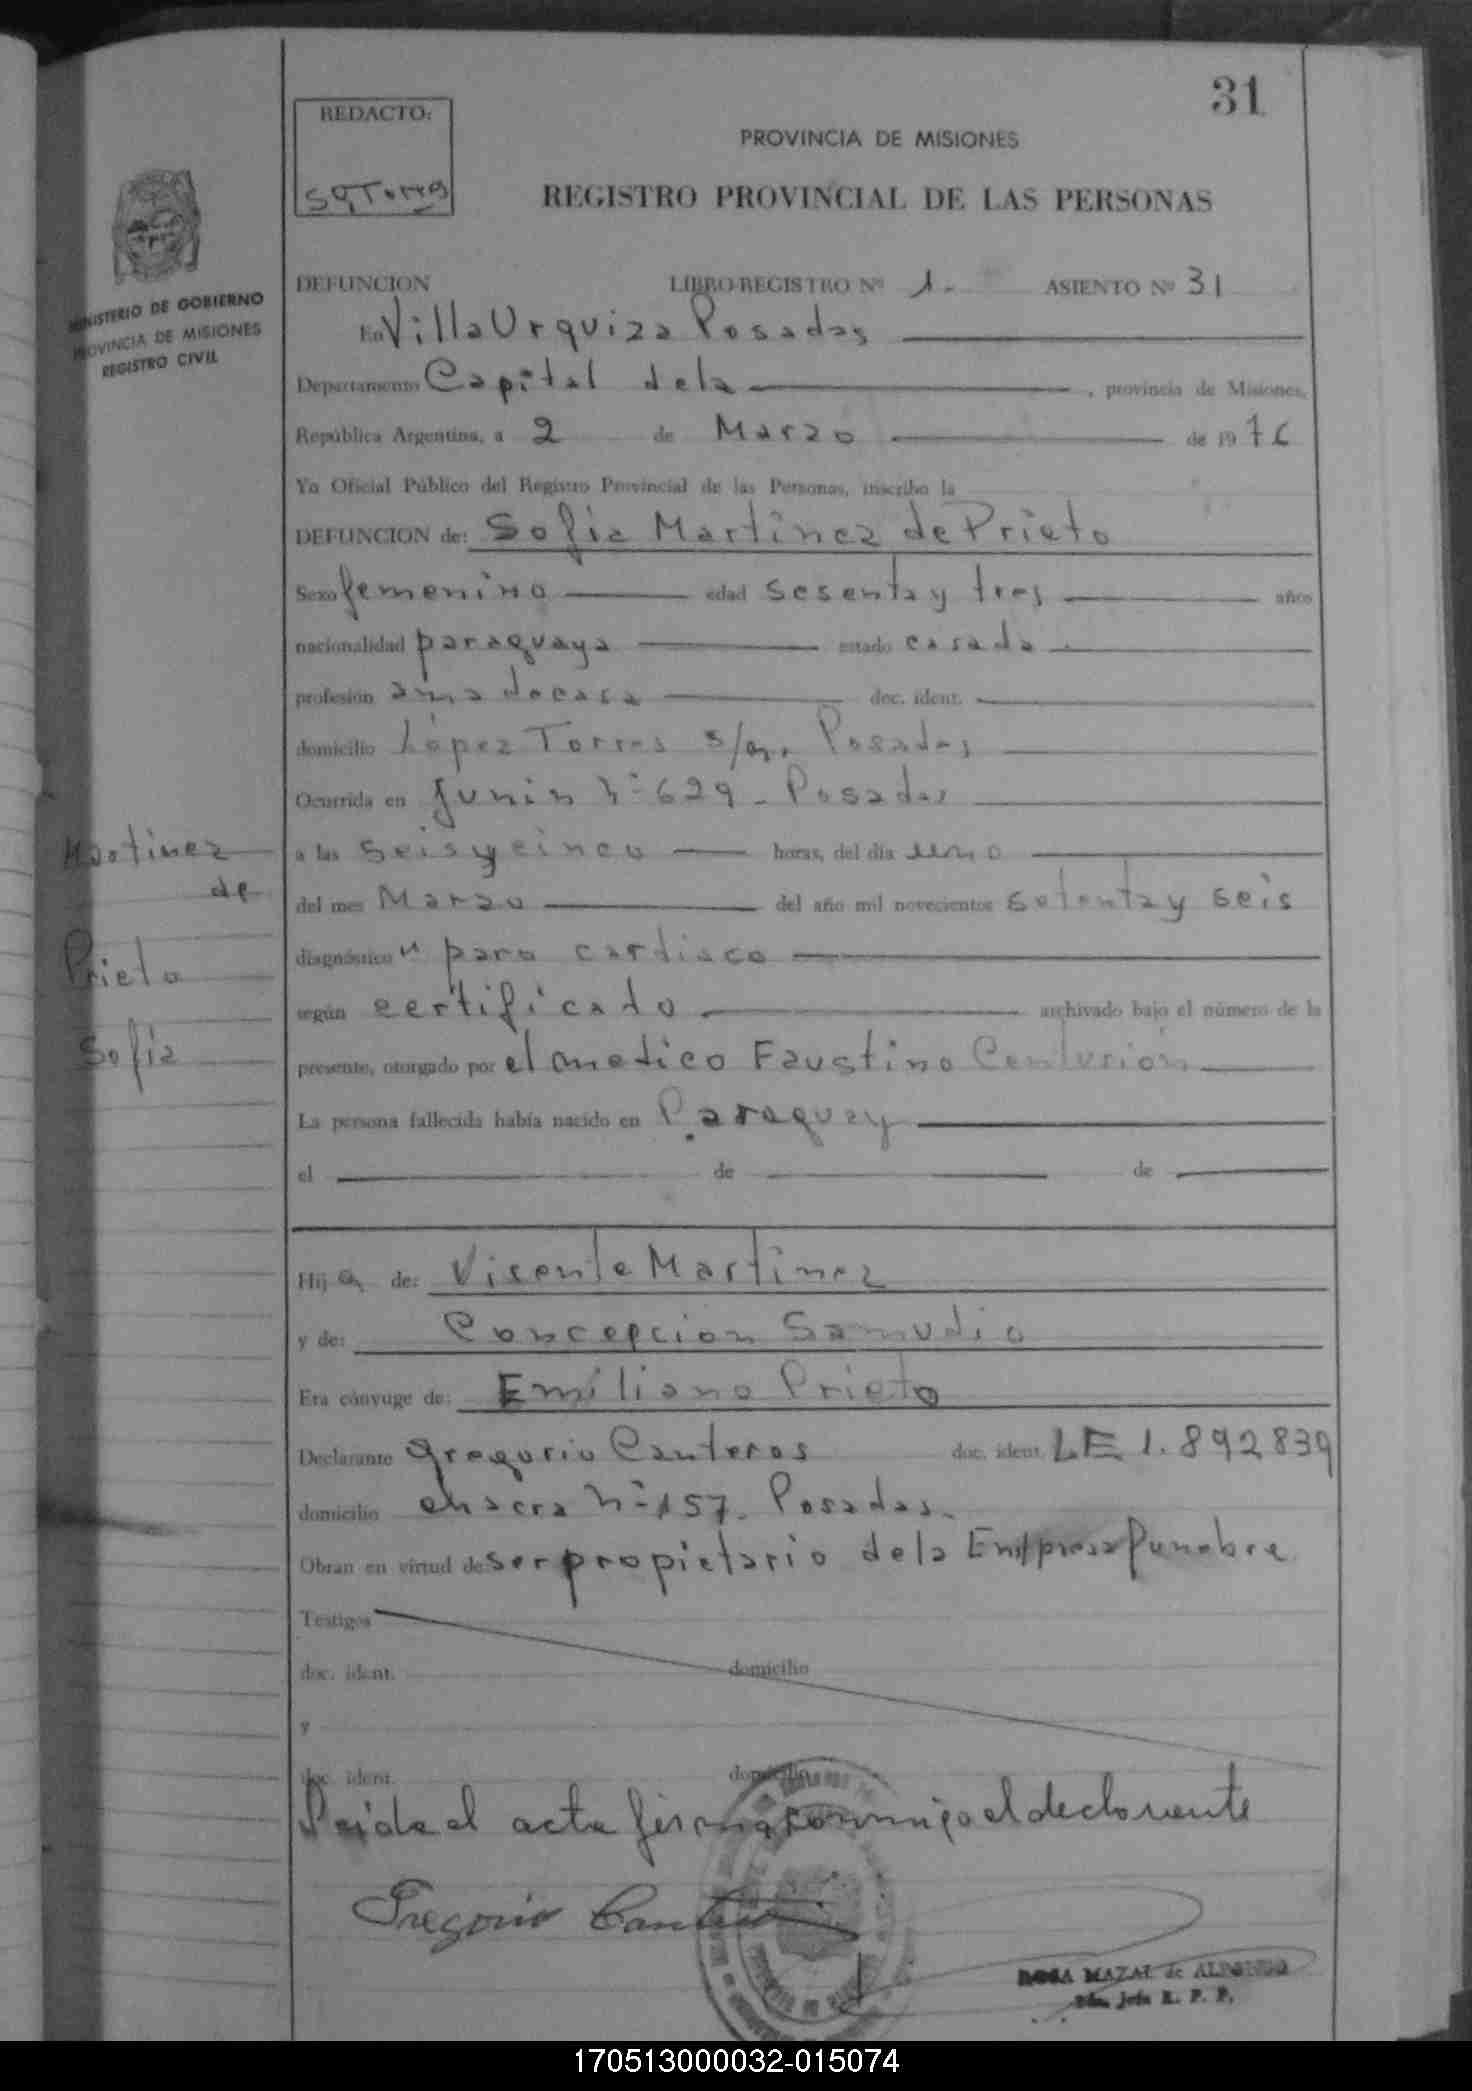 31
REDACTO:
PROVINCIA DE MISIONES
REGISTRO PROVINCIAL DE LAS PERSONAS
MINISTERIO DE GOBIERNO
PROVINCIA DE MISIONES
REGISTRO CIVIL
DEFUNCION LIBRO-REGISTRO Nº 1. ASIENTO Nº 31
En Villa Urquiza Posadas
Departamento Capital dela , provincia de Misiones,
República Argentina, a 2 de Marzo de 1976
Yo Oficial Público del Registro Provincial de las Personas, inscribo la
DEFUNCION de: Sofia Martinez de Prieto
Sexo femenino edad sesenta y tres años
nacionalidad paraguaya estado casada
profesión ama de casa doc. ident.
domicilio López Torres s/n. Posadas
Ocurrida en Junin Nº 629 - Posadas
a las seis y cinco horas, del día uno
del mes Marzo del año mil novecientos setenta y seis
diagnóstico " paro cardiaco
según certificado archivado bajo el número de la
presente, otorgado por el medico Faustino Centurión
La persona fallecida había nacido en Paraguay
el de de
Martinez
de
Prieto
Sofia
Hija de: Vicente Martinez
y de: Concepcion Samudio
Era cónyuge de: Emiliano Prieto
Declarante Gregorio Canteros doc. ident. LE 1.892839
domicilio chacra Nº 157. Posadas.
Obran en virtud de ser propietario dela Empresa funebre
Testigos
doc. ident. domicilio
y
doc. ident. domicilio
el acta firma conmigo el declarante
Gregorio
ROSA MAZAL de
R. P. P.
170513000032-015074